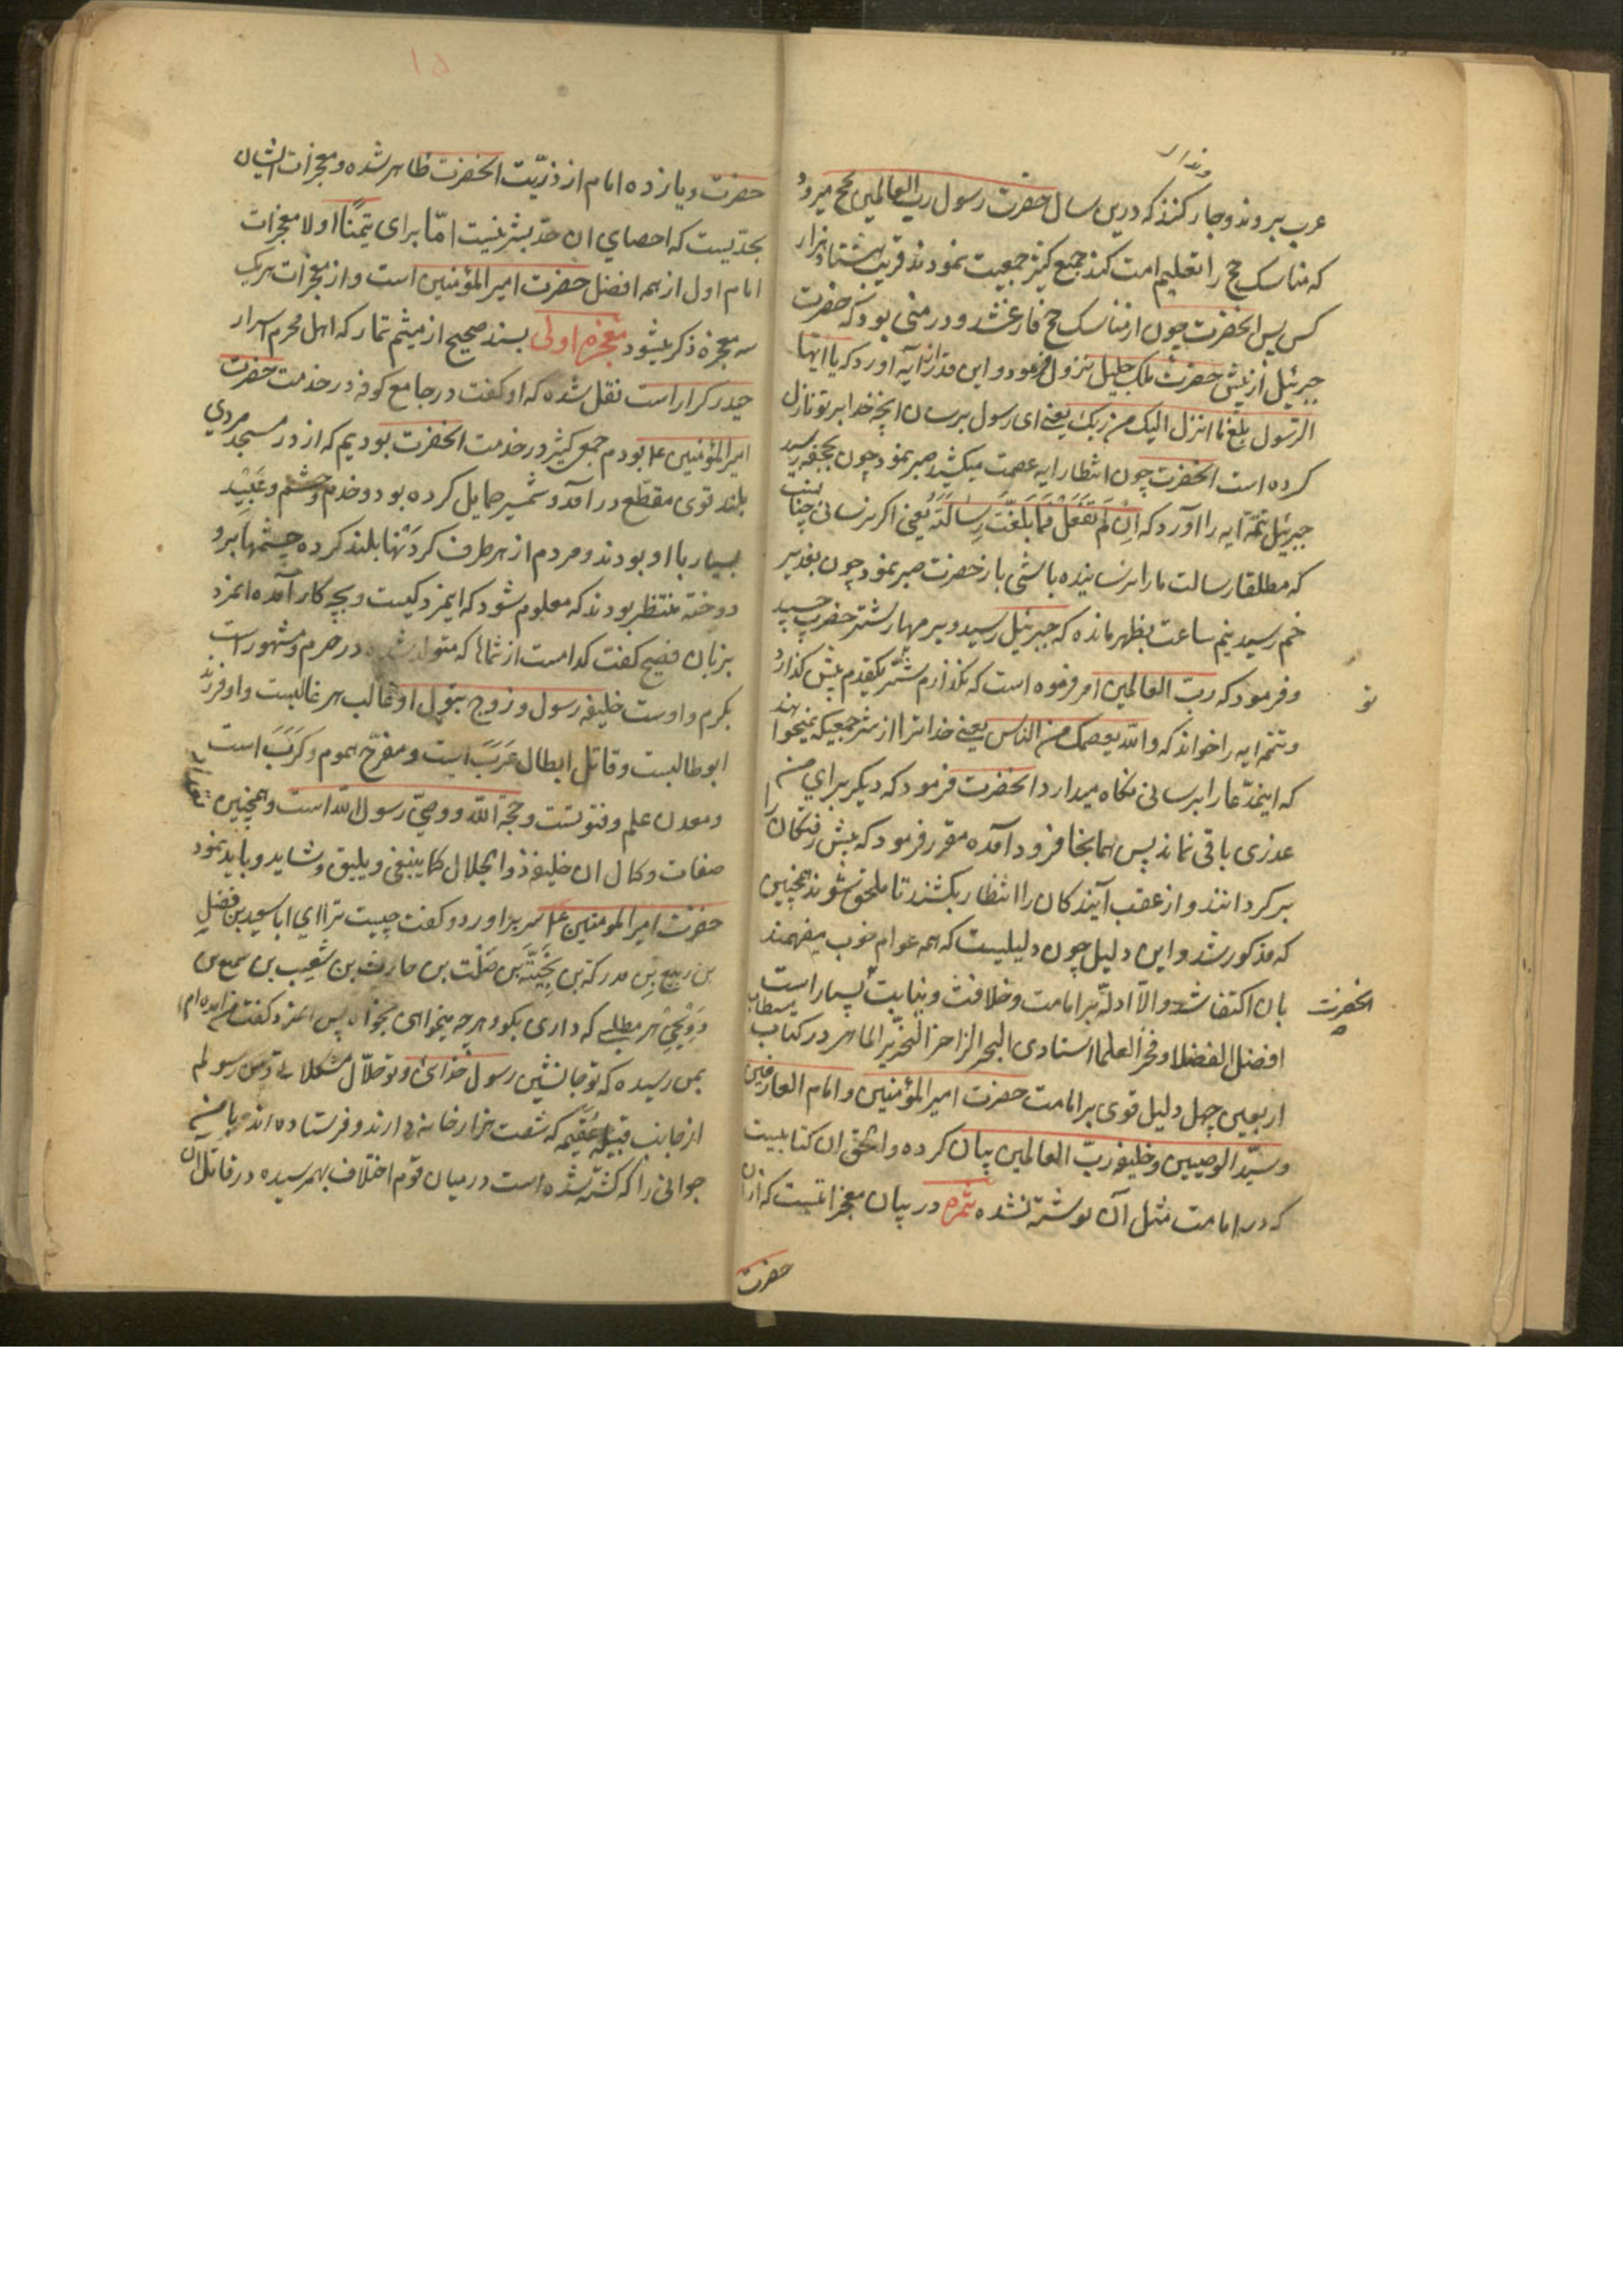 عرب بروند و جار کنند که درین سال حضرت رسول رب العالمین بحج میرود
که مناسک حج را تعلیم امت کند جمع کثیر جمعیت نمودند قریب بهشتاد هزار
کس پس انحضرت چون از مناسک حج فارغ شد و در منی بود که حضرت
جبرئیل از پیش حضرت ملک جلیل نزول فرمود و این قدر از آیه آورد که یا ایها
الرسول بلغ ما انزل الیک من ربک یعنی ای رسول برسان آنچه خدا بر تو نازل
کرده است انحضرت چون انتظار ایه عصمت میکشید صبر نمود چون بجحفه رسید
جبرئیل تتمه ایه را آورد که اِن لَم تَفعَل فَمَا بَلَّغتَ رِسالَتَهُ یعنی اگر نرسانی چنانست
که مطلقا رسالت ما را نرسانیده باشی باز حضرت صبر نمود چون بغدیر
خم رسید نیم ساعت بظهر مانده که جبرئیل رسید و سر مهار شتر حضرت چسپید
و فرمود که رب العالمین امر فرموده است که نگذارم شتر یکقدم پیش گذارد
و تتمه ایه را خواند که والله یعصمک من الناس یعنی خدا ترا از شر جمعیکه نمیخواهند
که اینمدعا را برسانی نگاه میدارد انحضرت فرمود که دیگر برای من
عذری باقی نماند پس همانجا فرود آمده مقرر فرمود که پیش رفتگان را
برگردانند و از عقب آیندکان را انتظار بکشند تا ملحق شوند همچنین
که مذکور شد و این دلیل چون دلیلیست که همه عوام خوب میفهمند
بان اکتفا شد والا ادله بر امامت و خلافت و نیابت بسیار است
انحضرت
افضل الفضلا و فخر العلما استادی البحر الزاخر النحریر الماهر در کتاب
اربعین چهل دلیل قوی بر امامت حضرت امیر المؤمنین و امام العارفین
و سید الوصیین و خلیفه رب العالمین بیان کرده و الحق ان کتابیست
که در امامت مثل آن نوشته نشده ثمره در بیان معجزاتیست که از ان
حضرت
۱۵
حضرت و یازده امام از ذریت انحضرت ظاهر شده و معجزات ایشان
بحدیست که احصای ان حد بشر نیست اما برای تیمناً اولا معجزات
امام اول از همه افضل حضرت امیر المؤمنین است و از معجزات هر یک
سه معجزه ذکر میشود معجزه اولی بسند صحیح از میثم تمار که اهل محرم اسرار
حیدر کرار است نقل شده که او گفت در جامع کوفه در خدمت حضرت
امیر المؤمنین ع بودم جمع کثیر در خدمت انحضرت بودیم که از در مسجد مردی
بلند قوی مقطع در آمد و شمشیر حمایل کرده بود و خدم و حشم و عبید
بسیار با او بودند و مردم از هر طرف گردنها بلند کرده چشمها برو
دوخته منتظر بودند که معلوم شود که اینمرد کیست و بچه کار آمده انمرد
بزبان فصیح گفت کدامست از شماها که متولد شده در حرم و مشهور است
بکرم و اوست خلیفه رسول و زوج بتول او غالب هر غالبست و او فرزند
ابو طالبست و قاتل ابطال عَرَبَ است و مفرح هموم و کَرَبَ است
و معدن علم و فتوتست و حجة الله و وصی رسول الله است و همچنین تعداد
صفات و کمال ان خلیفه ذو الجلال کما ینبغی و یلیق و شاید و باید نمود
حضرت امیر المومنین ع سر بر اورد و گفت چیست ترا ای ابا سعید بن فضل
بن ربیع بن مدرکة بن نجیّة بن صلت بن حارث بن شعیب بن سمیع بن
هر مطلبی که داری بگو و هر چه میخواهی بخواه پس انمرد گفت من
بمن رسیده که تو جانشین رسول خدائی و تو حلال مشکلاتی و من رسولم
از جانب قبیله عقیمه که شصت هزار خانه دارند و فرستاده اند با من
جوانی را که کشته شده است در میان قوم اختلاف بهمرسیده در قاتل آن